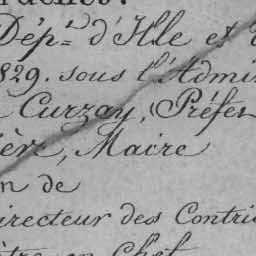 Dép.t d'Ille et
829. sous l'Admi
Curzay, Préfe
Maire
n de
irecteur des Contri
en Chef